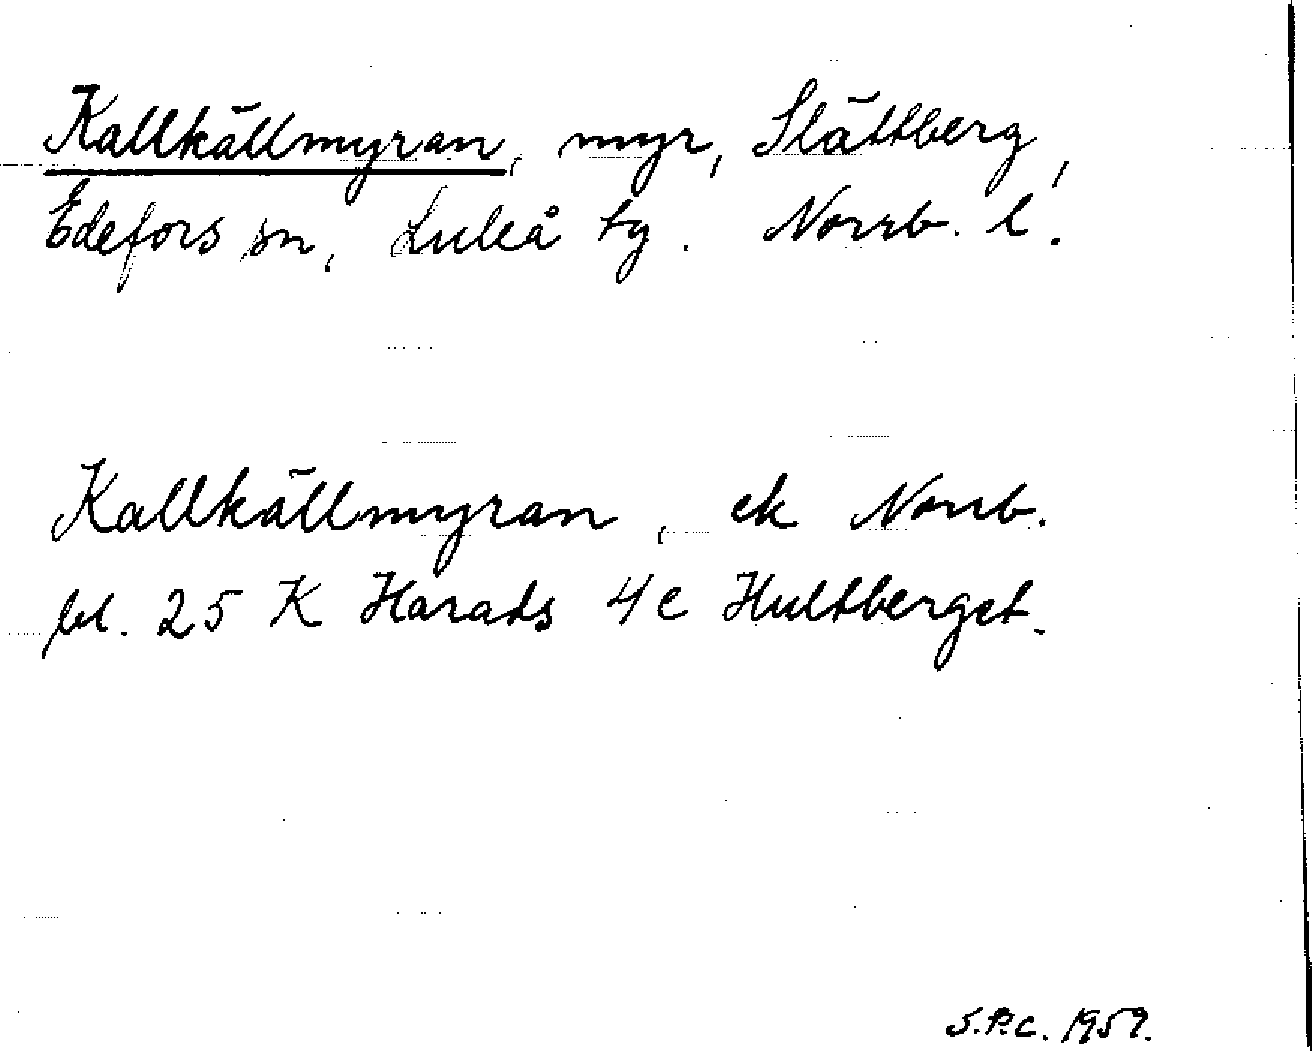 Kallkällmyran, myr, Slättberg,
Edefors sn, Luleå tg. Norrb. l.
Kallkällmyran, ek Norrb.
bl. 25 K Harads 4 c Hultberget.
S.P.C. 1959.